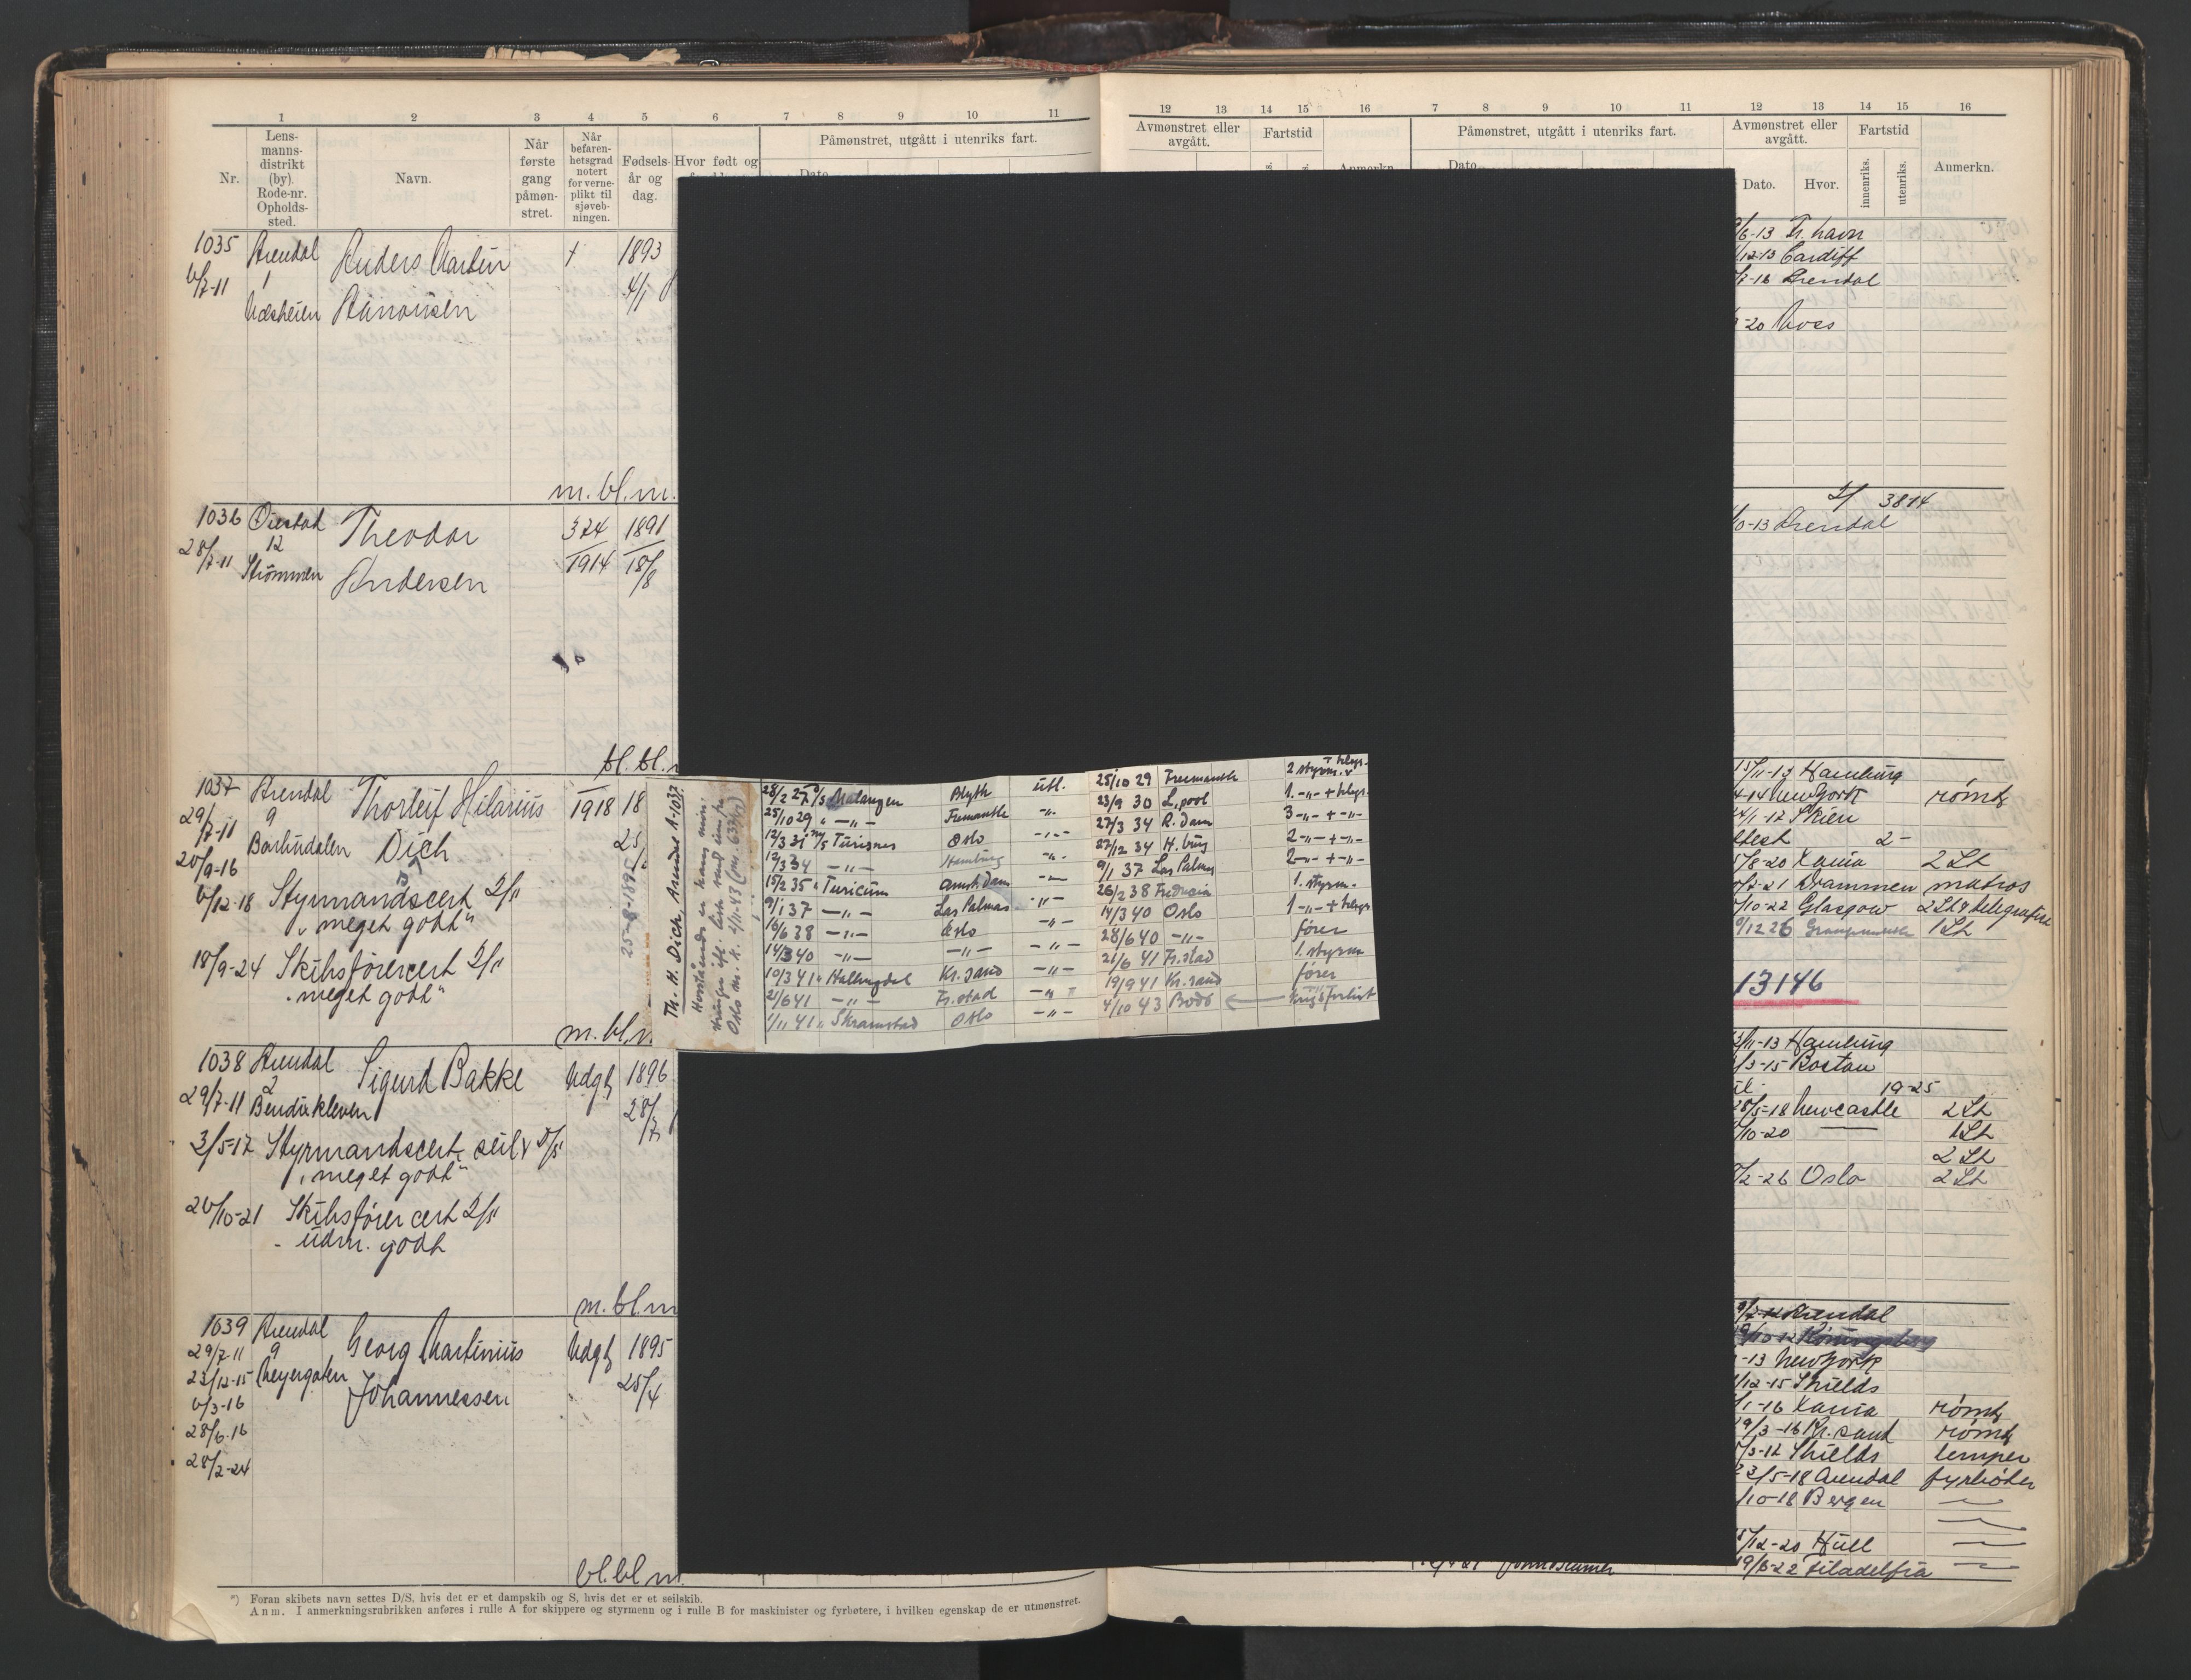 1 2 3 4 5 6 7 8 9 10 11
Nr.
Lens-
manns-
distrikt
(by).
Rode-nr.
Opholds-
sted.
Navn.
Når
første
gang
påmøn-
stret.
Når
befaren-
hetsgrad
notert
for verne-
plikt til
sjøveb-
ningen.
Fødsels-
år og
dag.
Hvor født og
Påmønstret, utgått i utenriks fart.
Dato
12 13 14 15 16 7 8 9 10 11 12 13 14 15 16
Avmønstret eller
avgått.
Fartstid
Anmerkn.
Påmønstret, utgått i utenriks fart.
Dato.
Avmønstret eller
avgått.
Fartstid
Dato. Hvor. innenriks. utenriks. Anmerkn.
1035 Arendal Anders Martin + 1893
6/7-11 1 4/1
m. bl. m.
1036 Øiestad Theodor 324 1891
28/7-11 12 1914 18/8
Strømmen Andersen
bl. bl.
1037 Arendal Thorleif Hilarius 1918 18
29/7-11 9 25/
Barbudalen Dich
20/9-16
6/12-18 Styrmandscert 2/11
"meget godt"
18/9-24 Skibsførercert 2/11
"meget godt"
25-8-1895
m. bl.
1038 Arendal Sigurd Bakke Udgt 1896
29/7-11 2 28/7
Bendixkleven
3/5-17 Styrmandscert, seil
"meget godt"
20/10-21 Skibsførercert 2/11
udm. godt
m. bl. m
1039 Arendal Georg Martinius Udgt 1895
29/7-11 9 25/4
23/12-15 Meyergaten Johannessen
6/3-16
28/6-16
28/2-24
bl. bl. m
Th. H. Dich, Arendal A-1037.
28/2 27 Malangen Blyth utl. 25/10 29 Freemantle 2 styrm.
25/10 29 " —"— Fremantle -"- 23/9 30 L.pool 1. -"- + telegr.
12/3 31 Turisnes Oslo -"- 27/3 34 R.dam 3 -"- + -"-
12/3 34 —"— Hamburg -"- 27/12 34 H.burg 2 -"- + -"-
15/2 35 " Turicum Amst.dam -"- 9/1 37 Las Palmas 2 -"- + -"-
9/1 37 —"— Las Palmas -"- 26/2 38 Fredricia 1. styrm.
16/6 38 —"— Oslo -"- 14/3 40 Oslo 1 -"- + telegr
14/3 40 —"— —"— -"- 28/6 40 -"- fører
10/3 41 " Hallingdal Kr.sand -"- 21/6 41 Fr.stad 1. styrm
21/6 41 —"— Fr.stad -"- 19/9 41 Kr.sand fører
1/11 41 " Skramstad Oslo -"- 4/10 43 Bodø Krigsforlist
6-13 Fr.havn
12-13 Cardiff
7-16 Arendal
-20 Moss
3814
0-13 Arendal
15/11-13 Hamburg
4-14 New York rømt
24/1-17 Skien
2-
5/8-20 Xania 2 St
2-21 Drammen matros
10-22 Glasgow 2 St & telegrafist
12 26 1 St
13146
2/11-13 Hamburg
3-15 Boston
19-25
28/5-18 Newcastle 2 St
10-20 1 St
2 St
2-26 Oslo 2 St
Arendal
-13 New York
12-15 Shields
1-16 Xania rømt
29/3-16 Kr.sand rømt
3-17 Shields lemper
23/5-18 Arendal fyrbøter
10-18 Bergen
5/12-20 Hull
19/6-22 Filadelfia
*) Foran skibets navn settes D/S, hvis det er et dampskib og S, hvis det er et seilskib.
Anm. I anmerkningsrubrikken anføres i rulle A for skippere og styrmenn og i rulle B for maskinister og fyrbøtere, i hvilken egenskap de er utmønstret.